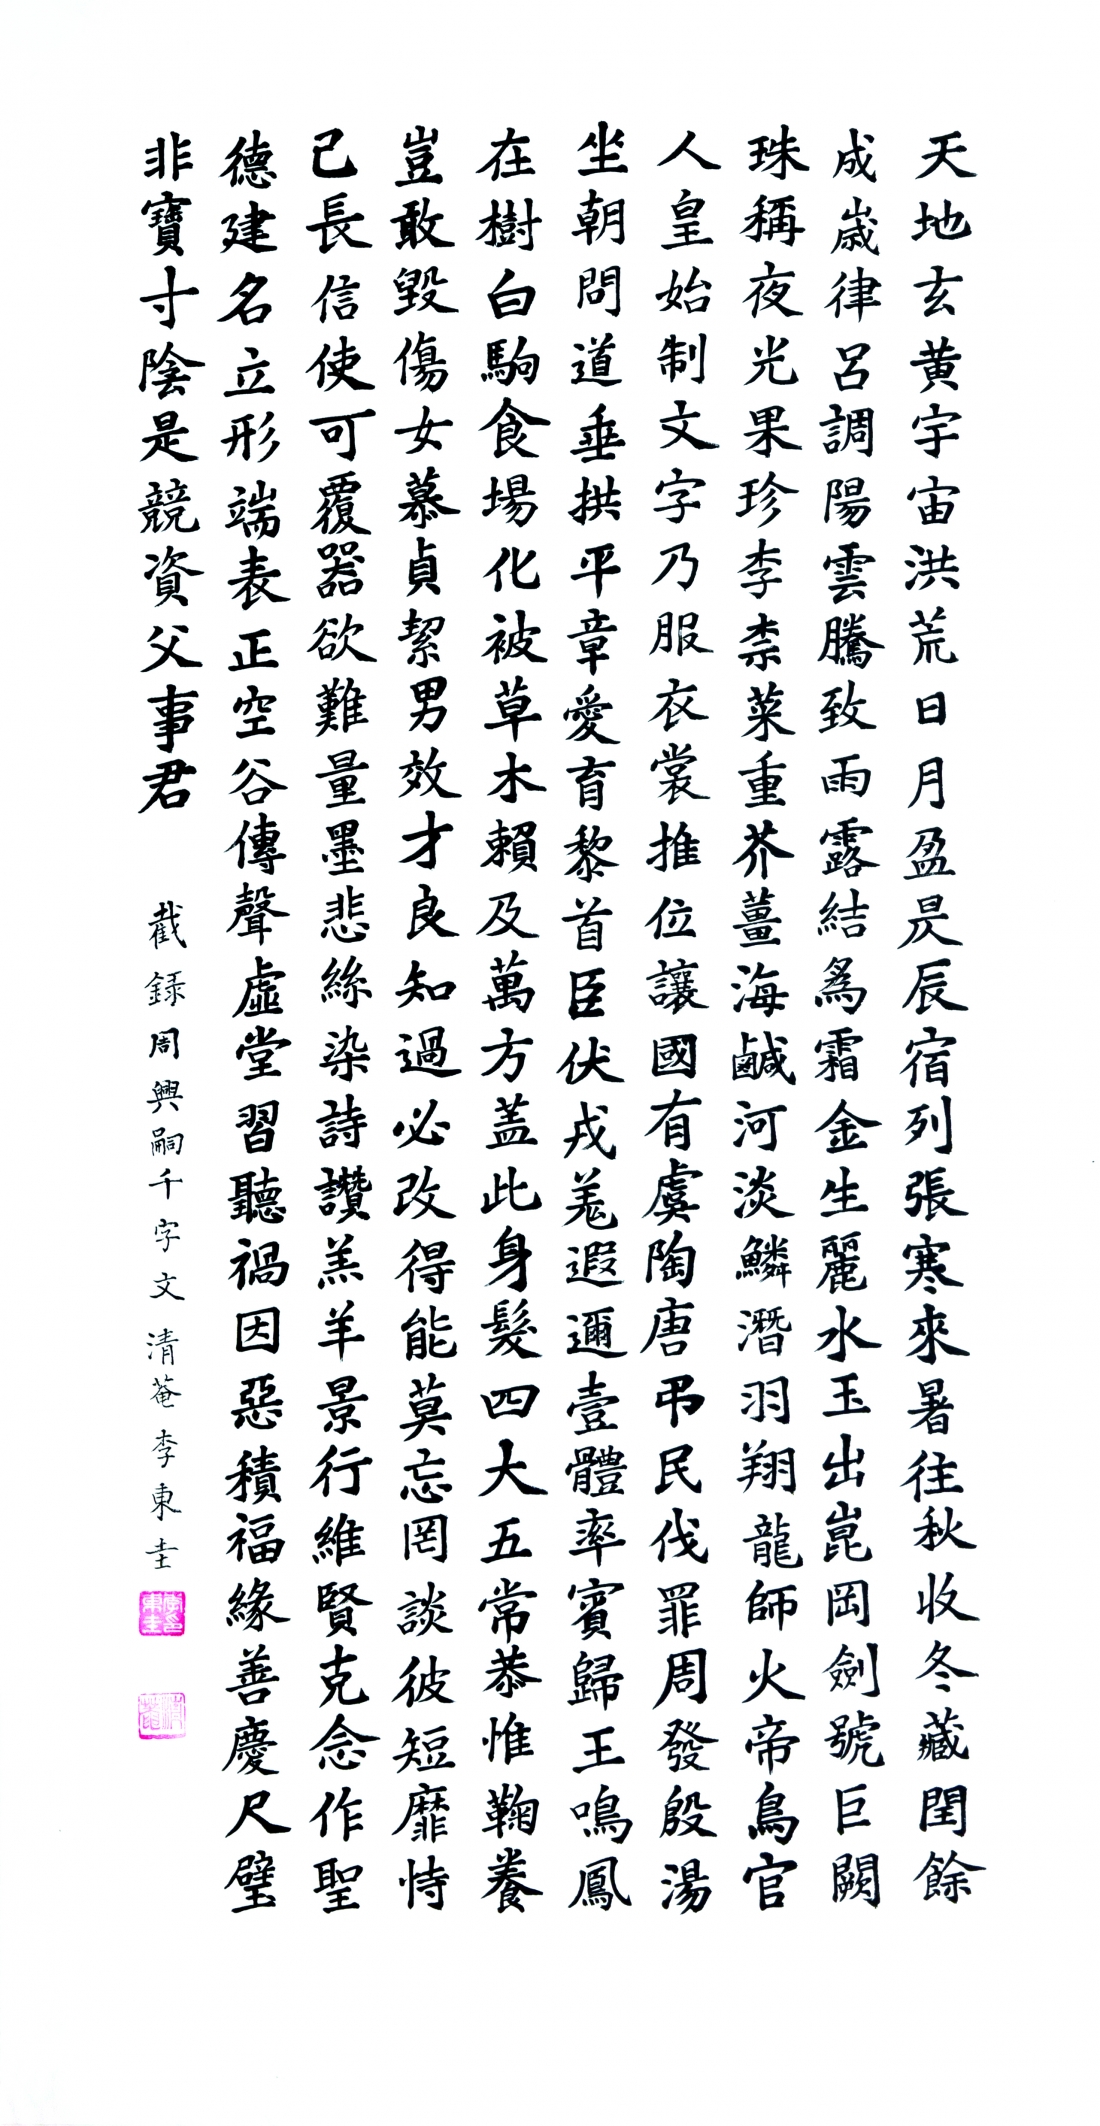 天地玄黃宇宙洪荒日月盈昃辰宿列張寒來暑往秋收冬藏閏餘
成歲律呂調陽雲騰致雨露結為霜金生麗水玉出崑岡劍號巨闕
珠稱夜光果珍李柰菜重芥薑海鹹河淡鱗潛羽翔龍師火帝鳥官
人皇始制文字乃服衣裳推位讓國有虞陶唐弔民伐罪周發殷湯
坐朝問道垂拱平章愛育黎首臣伏戎羌遐邇壹體率賓歸王鳴鳳
在樹白駒食場化被草木賴及萬方蓋此身髮四大五常恭惟鞠養
豈敢毀傷女慕貞絜男效才良知過必改得能莫忘罔談彼短靡恃
己長信使可覆器欲難量墨悲絲染詩讚羔羊景行維賢克念作聖
德建名立形端表正空谷傳聲虛堂習聽禍因惡積福緣善慶尺璧
非寶寸陰是競資父事君
截録周興嗣千字文清菴李東圭